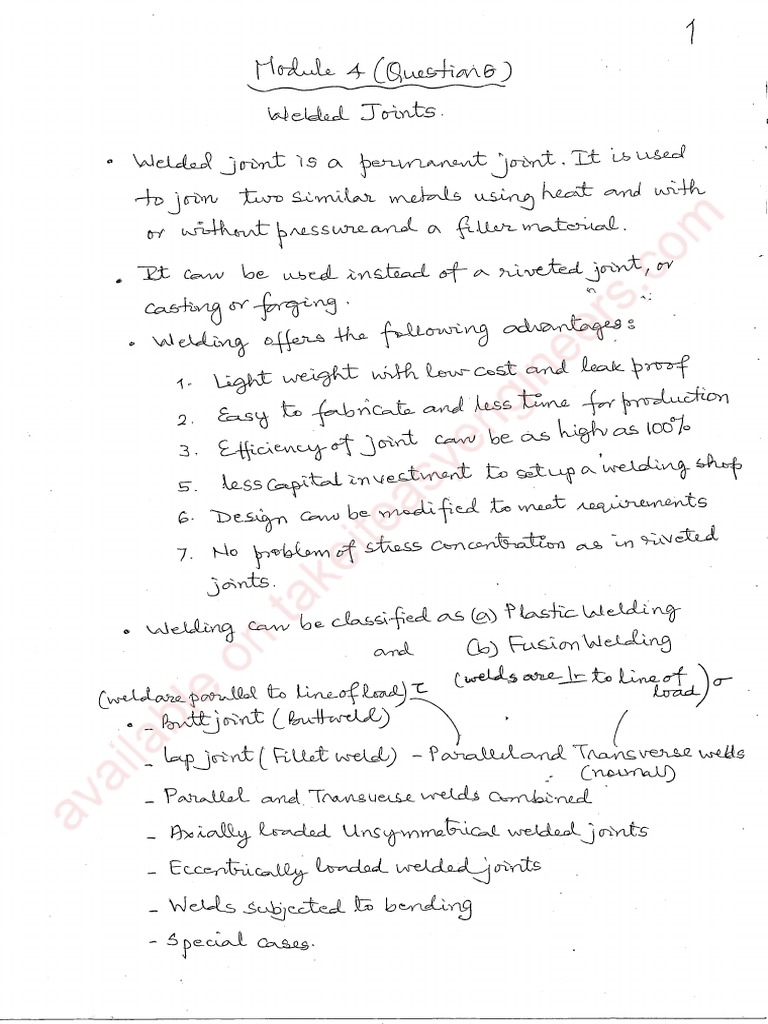 1
Module 4 (Question 6)
Welded Joints.
• Welded joint is a permanent joint. It is used
to join two similar metals using heat and with
or without pressure and a filler material.
• It can be used instead of a riveted joint, or
casting or forging.
• Welding offers the following advantages:
1. Light weight with low cost and leak proof
2. Easy to fabricate and less time for production
3. Efficiency of joint can be as high as 100%
5. less capital investment to set up a welding shop
6. Design can be modified to meet requirements
7. No problem of stress concentration as in riveted
joints.
• Welding can be classified as (a) Plastic Welding
and (b) Fusion Welding
(weld are parallel to line of load) τ (welds are ⊥r to line of load) σ
• - Butt joint (Butt weld)
- Lap joint (Fillet weld) - Parallel and Transverse welds
(normal)
- Parallel and Transverse welds combined
- Axially loaded Unsymmetrical welded joints
- Eccentrically loaded welded joints
- Welds subjected to bending
- Special cases.
available on takeiteasyengineers.com